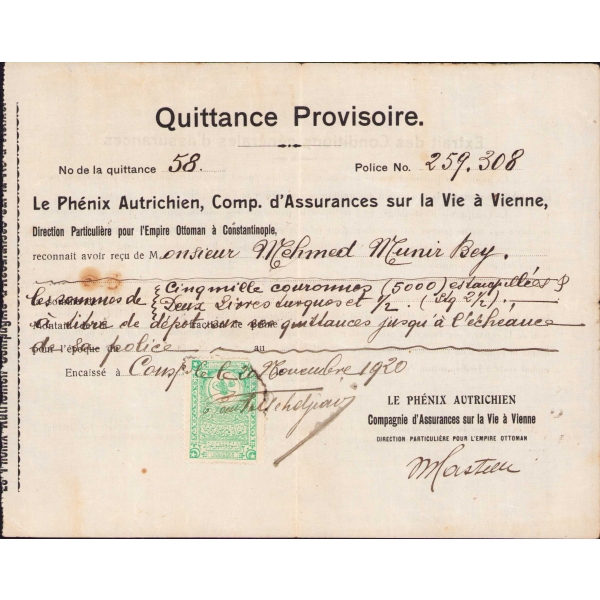 Quittance Provisoire.
No de la quittance 58.
Police No. 259.308
Le Phénix Autrichien, Comp. d'Assurances sur la Vie à Vienne,
Direction Particulière pour l'Empire Ottoman à Constantinople,
reconnait avoir reçu de Monsieur Mehmed Munir Bey.
les sommes de { Cinq mille couronnes (5000) estampillées &
Deux Livres turques et 1/2. (Ltq 2½).
à titre de dépôt sur quittances jusqu'à l'échéance
pour l'époque de sa police au
Encaissé à Consple le 20 Novembre 1920
LE PHÉNIX AUTRICHIEN
Compagnie d'Assurances sur la Vie à Vienne
DIRECTION PARTICULIÈRE POUR L'EMPIRE OTTOMAN